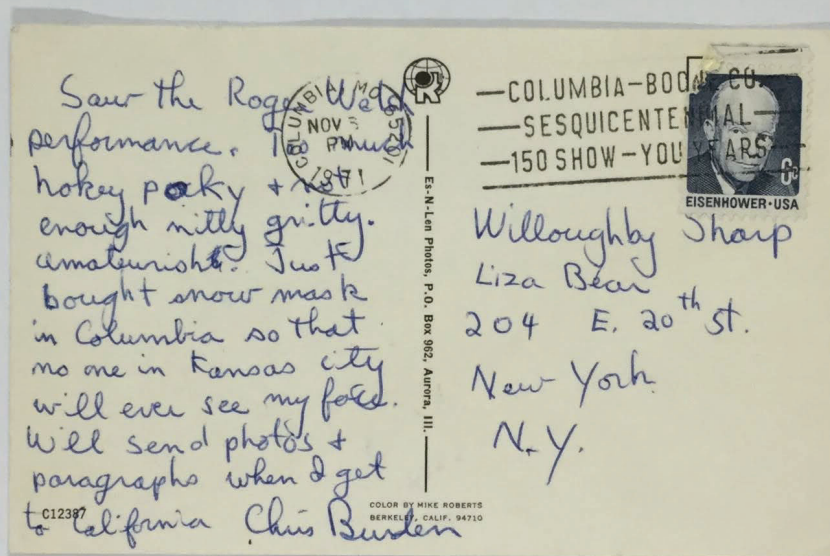 Saw the Roger Welch
performance. Too much
hokey poky + not
enough nitty gritty.
amateurish. Just
bought snow mask
in Columbia so that
no one in Kansas city
will ever see my face.
Will send photos +
paragraphs when I get
to California Chris Burden
C12387
COLUMBIA MO 65201
NOV
PM
1971
Es-N-Len Photos, P.O. Box 962, Aurora, Ill.
COLOR BY MIKE ROBERTS
BERKELEY, CALIF. 94710
COLUMBIA-BOONE CO.
SESQUICENTENNIAL
150 SHOW-YOU YEARS
6c
EISENHOWER·USA
Willoughby Sharp
Liza Bear
204 E. 20th St.
New York
N.Y.